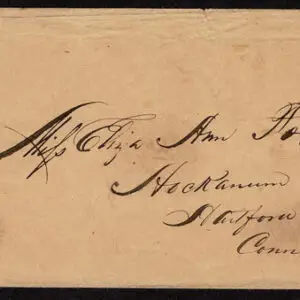 Miss Eliza Ann
Hockanum
Hartford
Conn